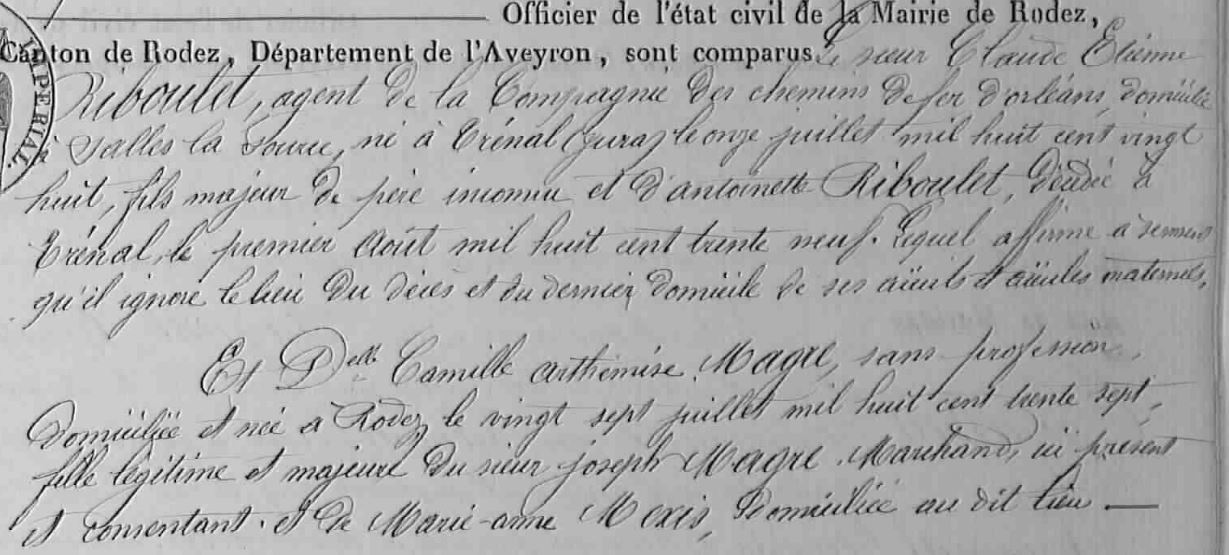 Officier de l'état civil de la Mairie de Rodez,
Canton de Rodez, Département de l'Aveyron, sont comparus le sieur Claude Etienne
Riboulet, agent de la Compagnie des chemins de fer d'orléans, domicilié
à Salles la Source, né à Trénal (Jura) le onze juillet mil huit cent vingt
huit, fils majeur de père inconnu et d'antoinette Riboulet, décédée à
Trénal, le premier Août mil huit cent trente neuf. Lequel affirme à serment
qu'il ignore le lieu du décès et du dernier domicile de ses aïeuls et aïeules maternels,
Et Delle Camille arthémise Magre, sans profession,
domiciliée et née à Rodez le vingt sept juillet mil huit cent trente sept,
fille légitime et majeure du sieur joseph Magre, Marchand, ici présent
et consentant. et de Marie-anne Mexis, domiciliée au dit lieu
IMPERIAL